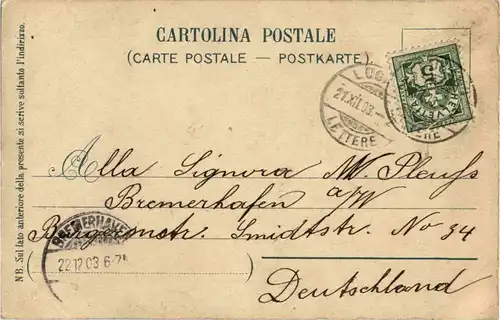 CARTOLINA POSTALE
(CARTE POSTALE — POSTKARTE)
N B. Sul lato anteriore della presente si scrive soltanto l'indirizzo.
LUG
21.XII.03.-
LETTERE
HELVETIA
5
Alla Signora M. Pleuss
Bremerhafen
a/W
Bürgermstr. Smidtstr. No 34
Deutschland
BREMERHAVE
22.12.03 6-7